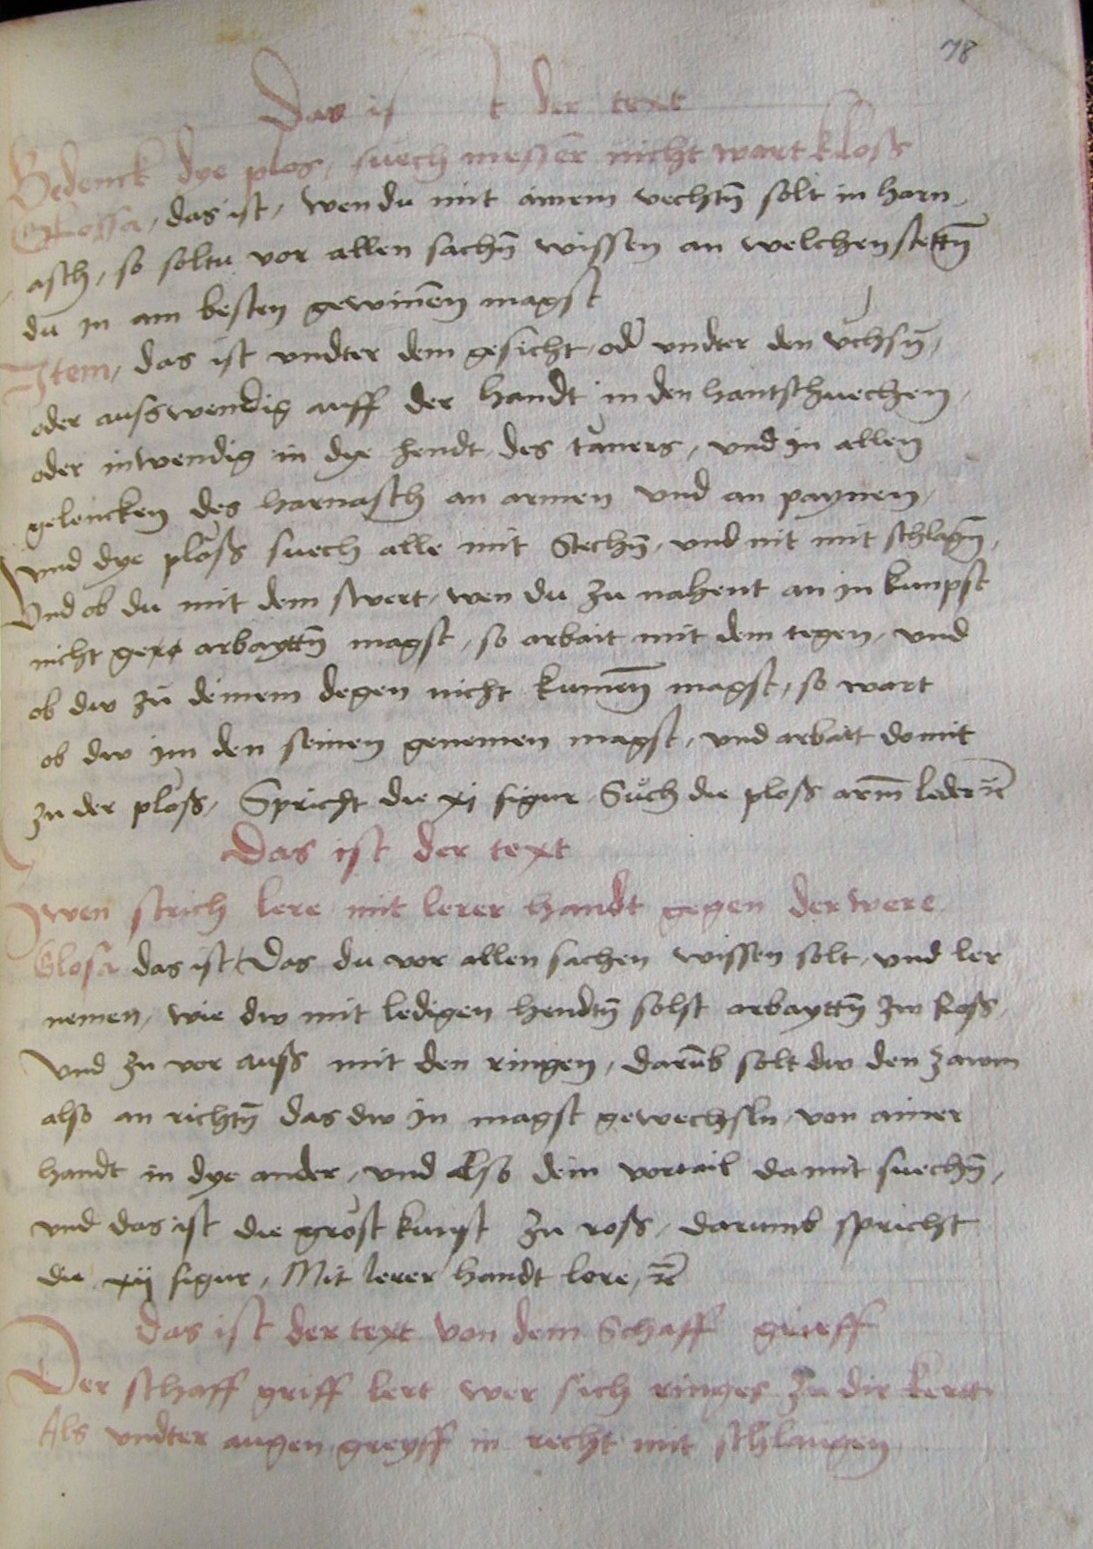 78
Das ist der text
Gedenck dye plos, suech messer nicht wart kloß
Glossa, das ist, wen du mit ainem vechtn̄ solt in harn„
asch, so soltu vor allen sachn̄ wissen an welchen stettn̄
du in am besten gewinen̄ magst
Item, das ist vndter dem gesicht, oder vndter den vchsn̄,
oder auswendig auff der handt in den hantschuechen,
oder inwendig in dye hendt des taners, vnd in allen
gelencken des harnasch an armen vnd an paynen,
vnd dye ploß suech alle mit stechn̄, vnd nit mit schlagn̄,
Vnd ob du mit dem swert, wen du zu nahent an in kumpst
nicht arbayttn̄ magst, so arbait mit dem tegen, vnd
ob dw zu deinem degen nicht kumen̄ magst, so wart
ob dw im den seinen genemen magst, vnd arbait domit
zu der ploß, Spricht die xj figur, Suech die ploß arm̄ leder ꝛc̄
Das ist der text
Zwen strich lere mit lerer handt gegen der were
Glosa das ist Das du vor allen sachen wissen solt, vnd ler
nemen, wie dw mit ledigen hendtn̄ solst arbayttn̄ zw Roß,
Vnd zu vor auß mit den ringen, darūb solt dw den zawm
also an richtn̄ das dw in magst gewechsln, von ainer
handt in dye ander, vnd also dein vortail damit suechn̄,
vnd das ist die grost kunst zu roß, darumb spricht
die xij figur, Mit lerer handt lere, ꝛc̄
das ist der text von dem Schaff grieff
Der schaff griff lert wer sich ringes zu dir kertt
Als vndter augen greyff in recht mit schlaugen